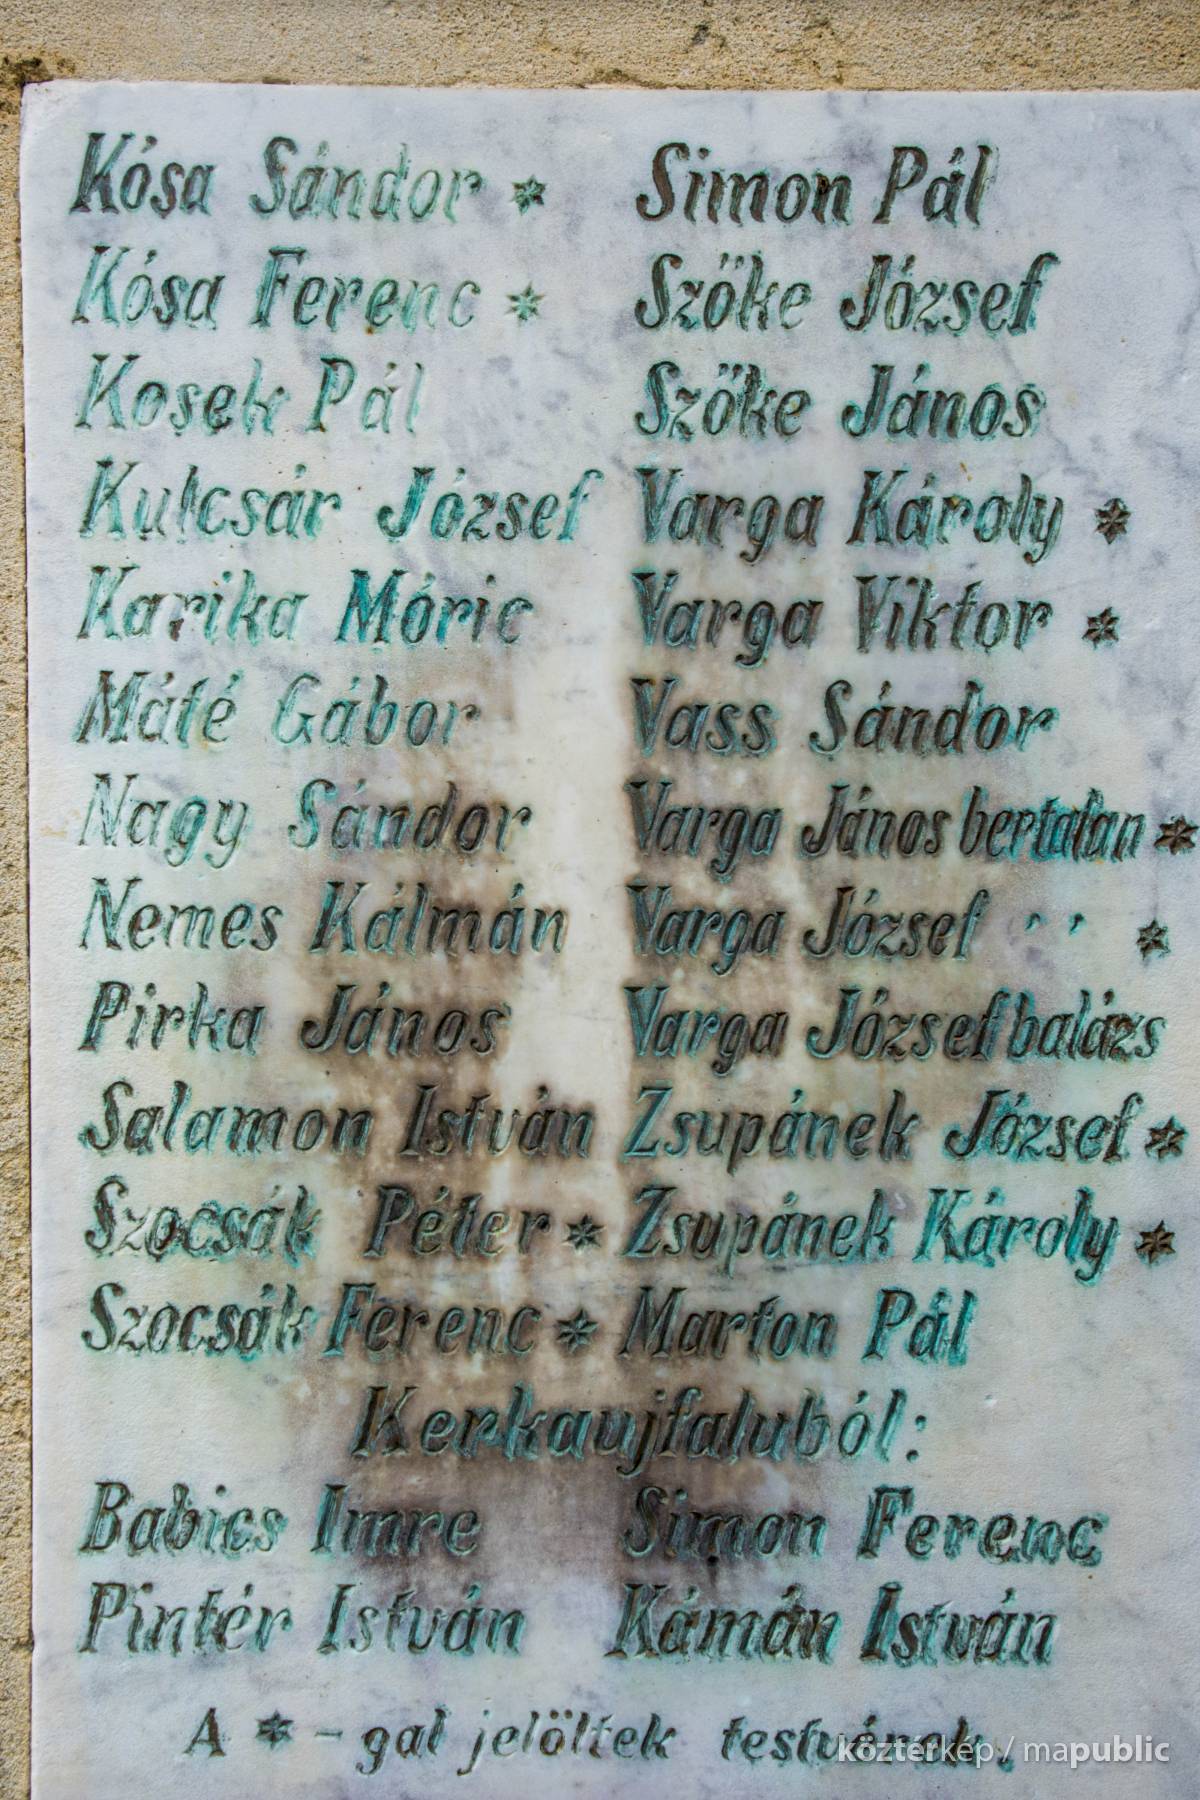 Kósa Sándor *
Kósa Ferenc *
Kosek Pál
Kulcsár József
Karika Móric
Máté Gábor
Nagy Sándor
Nemes Kálmán
Pirka János
Salamon István
Szocsák Péter *
Szocsák Ferenc *
Simon Pál
Szőke József
Szőke János
Varga Károly *
Varga Viktor *
Vass Sándor
Varga János bertalan *
Varga József ՛ ՛ *
Varga József balázs
Zsupánek József *
Zsupánek Károly *
Marton Pál
Kerkaujfaluból:
Babics Imre
Pintér István
Simon Ferenc
Kámán István
A * - gal jelöltek testvérek.
köztérkép / mapublic